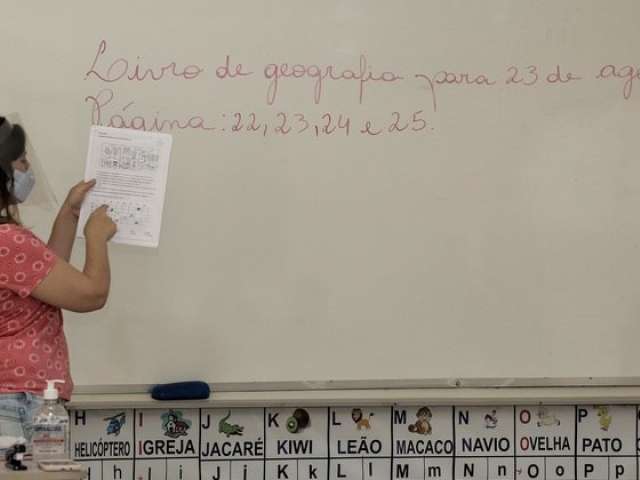 Livro de geografia para 23 de ago
Página: 22, 23, 24 e 25.
H I J K L M N O P
HELICÓPTERO IGREJA JACARÉ KIWI LEÃO MACACO NAVIO OVELHA PATO
h I i J j K k L l M m N n O o P p